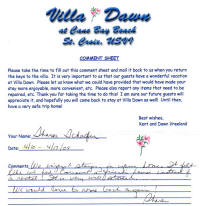 Villa Dawn
at Cane Bay Beach
St. Croix, USVI
COMMENT SHEET
Please take the time to fill out this comment sheet and mail it back to us when you return
the keys to the villa. It is very important to us that our guests have a wonderful vacation
at Villa Dawn. Please let us know what we could have provided that would have made your
stay more enjoyable, more convenient, etc. Please also report any items that need to be
repaired, etc. Thank you for taking the time to do this! I am sure our future guests will
appreciate it, and hopefully you will come back to stay at Villa Dawn as well. Until then,
have a very safe trip home!
Best wishes,
Kent and Dawn Vreeland
Your Name: Sharon
Date: 4/10 - 4/17/05
Comments: We enjoyed staying in your home. It felt
like we
a rental. It was very well
We would love to come back again
Sharon